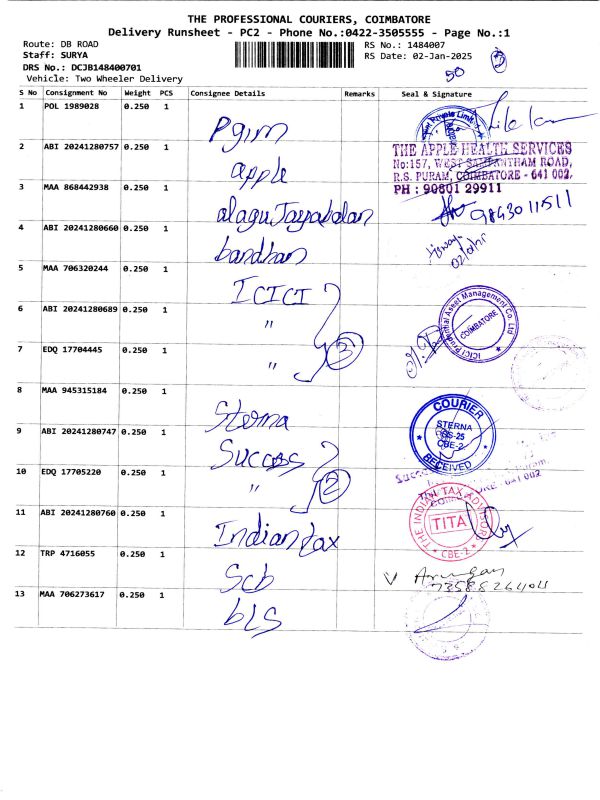 THE PROFESSIONAL COURIERS, COIMBATORE
Delivery Runsheet - PC2 - Phone No.:0422-3505555 - Page No.:1
Route: DB ROAD
RS No.: 1484007
Staff: SURYA
RS Date: 02-Jan-2025
DRS No.: DCJB148400701
Vehicle: Two Wheeler Delivery
50
S No Consignment No Weight PCS Consignee Details Remarks Seal & Signature
1 POL 1989028 0.250 1 Pgim
2 ABI 20241280757 0.250 1 apple
THE APPLE HEALTH SERVICES
No:157, WEST SAMBANTHAM ROAD,
R.S. PURAM, COIMBATORE - 641 002.
PH : 90801 29911
3 MAA 868442938 0.250 1 alagu Jayabalan 9843011511
4 ABI 20241280660 0.250 1 bandhan
5 MAA 706320244 0.250 1 ICICI
6 ABI 20241280689 0.250 1 "
ICICI Prudential Asset Management Co. Ltd
COIMBATORE
7 EDQ 17704445 0.250 1 " 3
8 MAA 945315184 0.250 1 Sterna
COURIER
STERNA
CBE-2
RECEIVED
9 ABI 20241280747 0.250 1 Success
10 EDQ 17705220 0.250 1 " 2
641 002
11 ABI 20241280760 0.250 1 Indian tax
THE INDIAN TAX ADVISOR
TITA
CBE-2
12 TRP 4716055 0.250 1 Scb
13 MAA 706273617 0.250 1 bLS